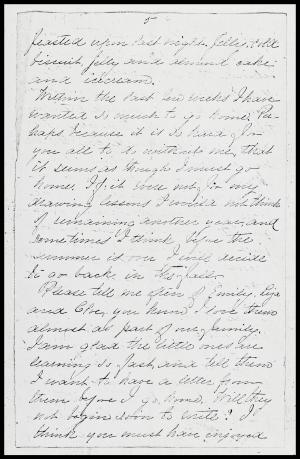 5
feasted upon last night. Jelly, cold
biscuit, jelly and almond cake
and icecream.
Within the last few weeks I have
wanted so much to go home. Per-
haps because it is so hard for
you all to do without me, that
it seems as though I must go
home. If it were not for my
drawing lessons I would not think
of remaining another year, and
sometimes I think before the
summer is over I will decide
to go back in the fall.
Please tell me often of Emily, Liza
and Cloe, you know I love them
almost as part of my family.
I am glad the little ones are
learning so fast, and tell them
I want to have a letter from
them before I go home. Will they
not begin soon to write? I
think you must have enjoyed